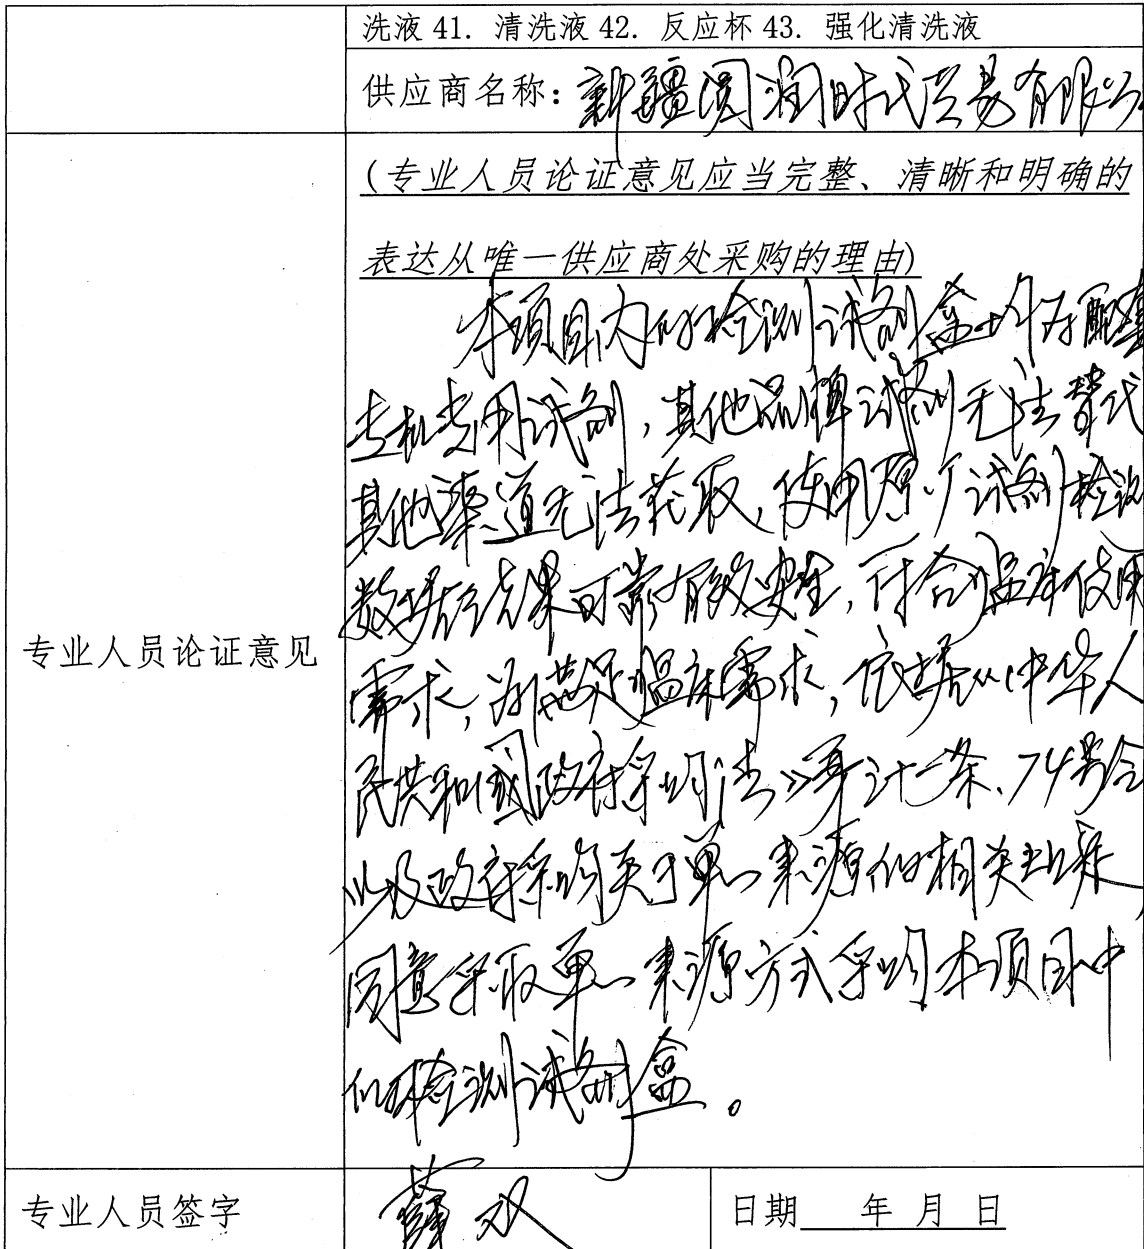 洗液 41. 清洗液 42. 反应杯 43. 强化清洗液
供应商名称：新疆润时代贸易有限公
(专业人员论证意见应当完整、清晰和明确的
表达从唯一供应商处采购的理由)
本项目内的检测试剂盒均为配套
专机专用试剂，其他品牌试剂无法替代
其他渠道无法获取，使用原厂试剂检测
数据结果可靠有效安全，符合临床使用
专业人员论证意见
需求，为满足临床需求，依据《中华人
民共和国政府采购法》第三十一条、74号令
以及政府采购关于单一来源的相关政策，
同意采取单一来源方式采购本项目中
的检测试剂盒。
专业人员签字
薛双
日期 年 月 日